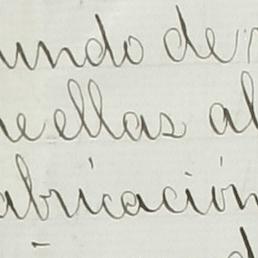 undo de
ellas al
abricación